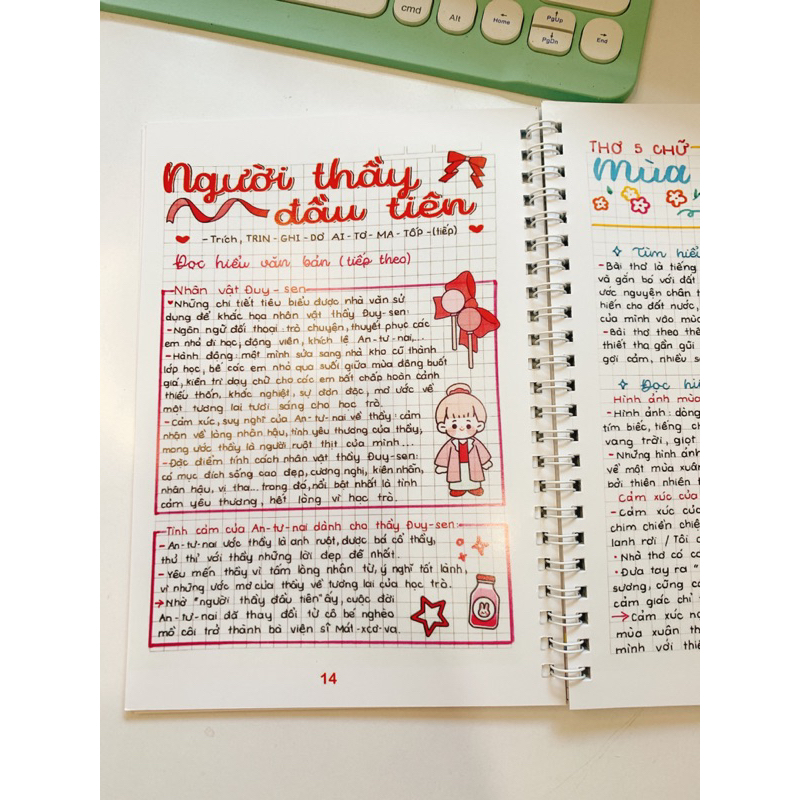 cmd
Alt
Home
PgUp
PgDn
End
Người thầy
đầu tiên
- Trích, TRIN - GHI - DƠ AI - TƠ - MA - TỐP - (tiếp)
Đọc hiểu văn bản (tiếp theo)
Nhân vật Đuy - sen
Những chi tiết tiêu biểu được nhà văn sử
dụng để khắc họa nhân vật thầy Đuy-sen:
- Ngôn ngữ đối thoại: trò chuyện, thuyết phục các
em nhỏ đi học, động viên, khích lệ An-tư-nai,...
- Hành động: một mình sửa sang nhà kho cũ thành
lớp học, bế các em nhỏ qua suối giữa mùa đông buốt
giá, kiên trì dạy chữ cho các em bất chấp hoàn cảnh
thiếu thốn, khắc nghiệt, sự đơn độc, mơ ước về
một tương lai tươi sáng cho học trò.
- Cảm xúc, suy nghĩ của An-tư-nai về thầy: cảm
nhận về lòng nhân hậu, tình yêu thương của thầy,
mong ước thầy là người ruột thịt của mình...
- Đặc điểm tính cách nhân vật thầy Đuy-sen:
có mục đích sống cao đẹp, cương nghị, kiên nhẫn,
nhân hậu, vị tha... trong đó, nổi bật nhất là tình
cảm yêu thương, hết lòng vì học trò.
Tình cảm của An-tư-nai dành cho thầy Đuy-sen:
- An-tư-nai ước thầy là anh ruột, được bá cổ thầy,
thủ thỉ với thầy những lời đẹp đẽ nhất.
- Yêu mến thầy vì tấm lòng nhân từ, ý nghĩ tốt lành,
vì những ước mơ của thầy về tương lai của học trò.
→ Nhờ "người thầy đầu tiên" ấy, cuộc đời
An-tư-nai đã thay đổi từ cô bé nghèo
mồ côi trở thành bà viện sĩ Mát-xcơ-va.
14
THƠ 5 CHỮ
Mùa
Tìm hiểu
- Bài thơ là tiếng
và gắn bó với đất
ước nguyện chân t
hiến cho đất nước,
của mình vào mùa
- Bài thơ theo thể
thiết tha gần gũi
gợi cảm, nhiều s
Đọc hiể
Hình ảnh mùa
- Hình ảnh: dòng
tím biếc, tiếng ch
vang trời, giọt
- Những hình ảnh
về một mùa xuân
bởi thiên nhiên t
Cảm xúc của
- Cảm xúc củ
chim chiền chiệ
lanh rơi / Tôi
• Nhà thơ có cả
• Đưa tay ra "
sương, cũng c
cảm giác chỉ
→ Cảm xúc n
mùa xuân th
mình với thiê